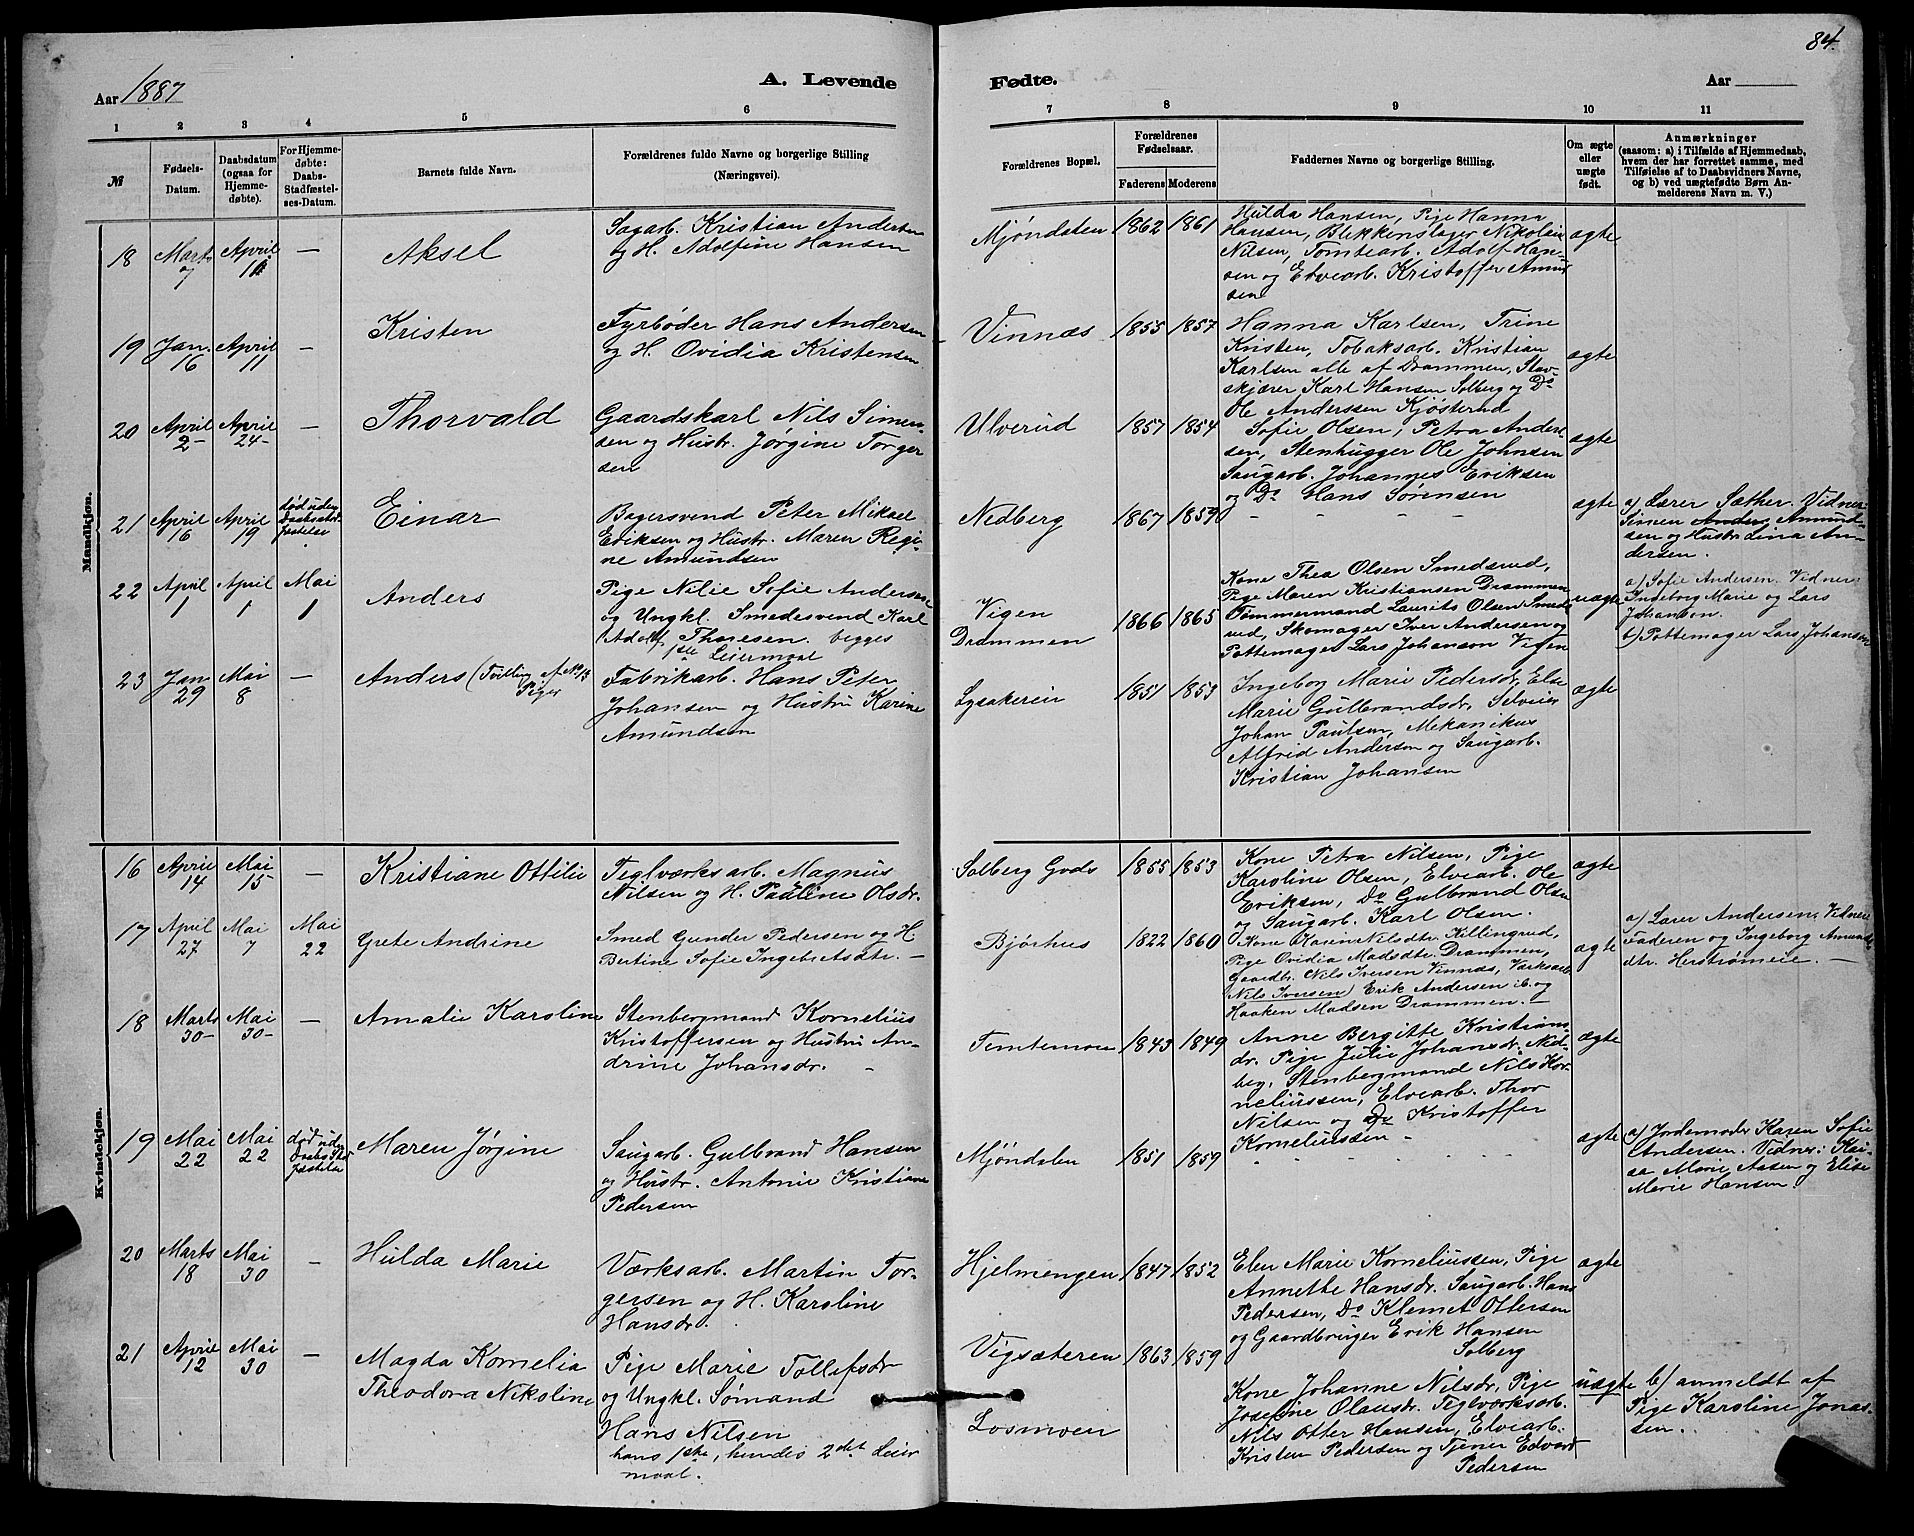 84.
Aar 1887
A. Levende
Fødte.
Aar
1 2 3 4 5 6 7 8 9 10 11
№
Fødsels-
Datum.
Daabsdatum
(ogsaa for
Hjemme-
døbte).
For Hjemme-
døbte:
Daabs-
Stadfæstel-
ses-Datum.
Barnets fulde Navn.
Forældrenes fulde Navne og borgerlige Stilling
(Næringsvei).
Forældrenes Bopæl.
Forældrenes
Fødselsaar.
Faderens Moderens
Faddernes Navne og borgerlige Stilling.
Om ægte
eller
uægte
født.
Anmærkninger
(saasom: a) i Tilfælde af Hjemmedaab,
hvem der har forrettet samme, med
Tilføielse af to Daabsvidners Navne,
og b) ved uægtefødte Børn An-
melderens Navn m. V.)
Mandkjøn.
18 Marts 7 April 11 — Aksel
Sagarb. Kristian Andersen
og H. Adolfine Hansen
Mjøndalen 1862 1861
Hulda Hansen, Pige Hanna
Hansen, Blikkenslager Nikolai
Nilsen, Tomtearb. Adolf Han-
sen og Elvearb. Kristoffer Amund
sen
ægte
19 Jan. 16 April 11 — Kristen
Fyrbøder Hans Andersen
og H. Ovidia Kristensen
Vinnæs 1855 1857
Hanna Karlsen, Trine
Kristen, Tobaksarb. Kristian
Karlsen alle af Drammen, Stav-
skjærer Karl Hansen Solberg og Do
Ole Anderssen Kjøsterud
ægte
20 April 2 - April 24 - — Thorvald
Gaardskarl Nils Simen-
sen og Hustr. Jørgine Torger
sen
Ulverud 1857 1854
Sofie Olsen, PetraAnder
sen, Stenhugger Ole Johnsen
Saugarb. Johannes Eriksen
og Do Hans Sørensen
ægte
21 April 16 April 19 død uden
Daabsstad-
fæstelse
Einar
Bagersvend Peter Mikael
Eriksen og Hustr. Maren Regi-
ne Amundsen
Nedberg 1867 1859 - - - -
ægte
a) Lærer Sæther. Vidner:
Simen Amund-
sen og Hustr Lina An-
dersen.
22 April 1 April 1 Mai 1 Anders
Pige Nilie Sofie Andersen
og Ungkl. Smedesvend Karl
Adolf Thoresen. begges
1ste Leiermaal
Vigen
Drammen
1866 1865
Kone Thea Olsen Smedsrud,
Pige Maren Kristiansen Drammen
Tømmermand Laurits Olsen Smeds
rud, Skomager Iver Andersen og
Pottemager Lars Johanson Vigen
uægte
a) Sofie Andersen. Vidner:
Ingeborg Marie og Lars
Johansen.
b) Pottemager Lars Johansen
23 Jan 29 Mai 8 — Anders (Tvilling af No 13
Piger
Fabrikarb. Hans Peter
Johansen og Hustru Karine
Amundsen
Lysakereie 1851 1853
Ingeborg Marie Pedersdr, Else
Marie Gulbrandsdr, Selveier
Johan Paulsen, Mekanikus
Alfrid Andersen og Saugarb.
Kristian Johansen
ægte
Kvindekjøn.
16 April 14 Mai 15 — Kristiane Ottilie
Teglværksarb. Magnus
Nilsen og H. Pauline Olsdr.
Solberg Gods 1855 1853
Kone Petra Nilsen, Pige
Karoline Olsen, Elvearb. Ole
Eriksen, Do Gulbrand Olsen
og Saugarb. Karl Olsen.
ægte
17 April 27 Mai 7 Mai 22 Grete Andrine
Smed Gunder Pedersen og H.
Bertine Sofie Ingebretsdtr. —
Bjørhus 1822 1860
Kone Karen Nilsdtr. Killingrud,
Pige Ovidia Madsdtr. Drammen,
Gaardb. Nils Iversen Vinnæs, Værksarb
(Nils Iversen) Erik Andersen ib. og
Haaken Madsen Drammen. —
ægte
a) Lærer Andersen. Vidner:
Faderen og Ingeborg Amunds
dtr. Herstrømeie. —
18 Marts 30 - Mai 30 - — Amalie Karoline
Stenbergmand Kornelius
Kristoffersen og Hustru An-
drine Johansdr. -
Temtemoen 1843 1849
Anne Bergitte Kristians
dr. Pige Julie Johansdr. Ned-
berg, Stenbergmand Nils Kor-
neliussen, Elvearb. Thor
Nilsen og Do Kristoffer
Korneliussen -
ægte
19 Mai 22 Mai 22 død uden
Daabs Stad
fæstelse
Maren Jørgine
Saugarb. Gulbrand Hansen
og Hustr. Antonie Kristiane
Pedersen
Mjøndalen 1851 1859 - - - -
ægte
a) Jordemoder Karen Sofie
Andersen. Vidner: Kai-
sa Marie Aasen og Elise
Marie Hansen.
20 Marts 18 Mai 30 — Hulda Marie
Værksarb. Martin Tor-
gersen og H. Karoline
Hansdr.
Hjelmengen 1847 1852
Elen Marie Korneliussen, Pige
Annette Hansdr. Saugarb. Hans
Pedersen, Do Klemet Ottersen
og Gaardbruger Erik Hansen
Solberg
ægte
21 April 12 Mai 30 — Magda Kornelia
Theodora Nikoline
Pige Marie Tollefsdr
og Ungkl. Sømand
Hans Nilsen
hans 1ste, hendes 2det Leier
maal.
Vigsæteren 1863 1859
Losmoen
Kone Johanne Nilsdr, Pige
Josefine Olausdr. Teglværksarb.
Nils Otter Hansen, Elvearb.
Kristen Pedersen og Tjener Edvard
Pedersen
uægte
b) anmeldt af
Pige Karoline Jonas-
sen.